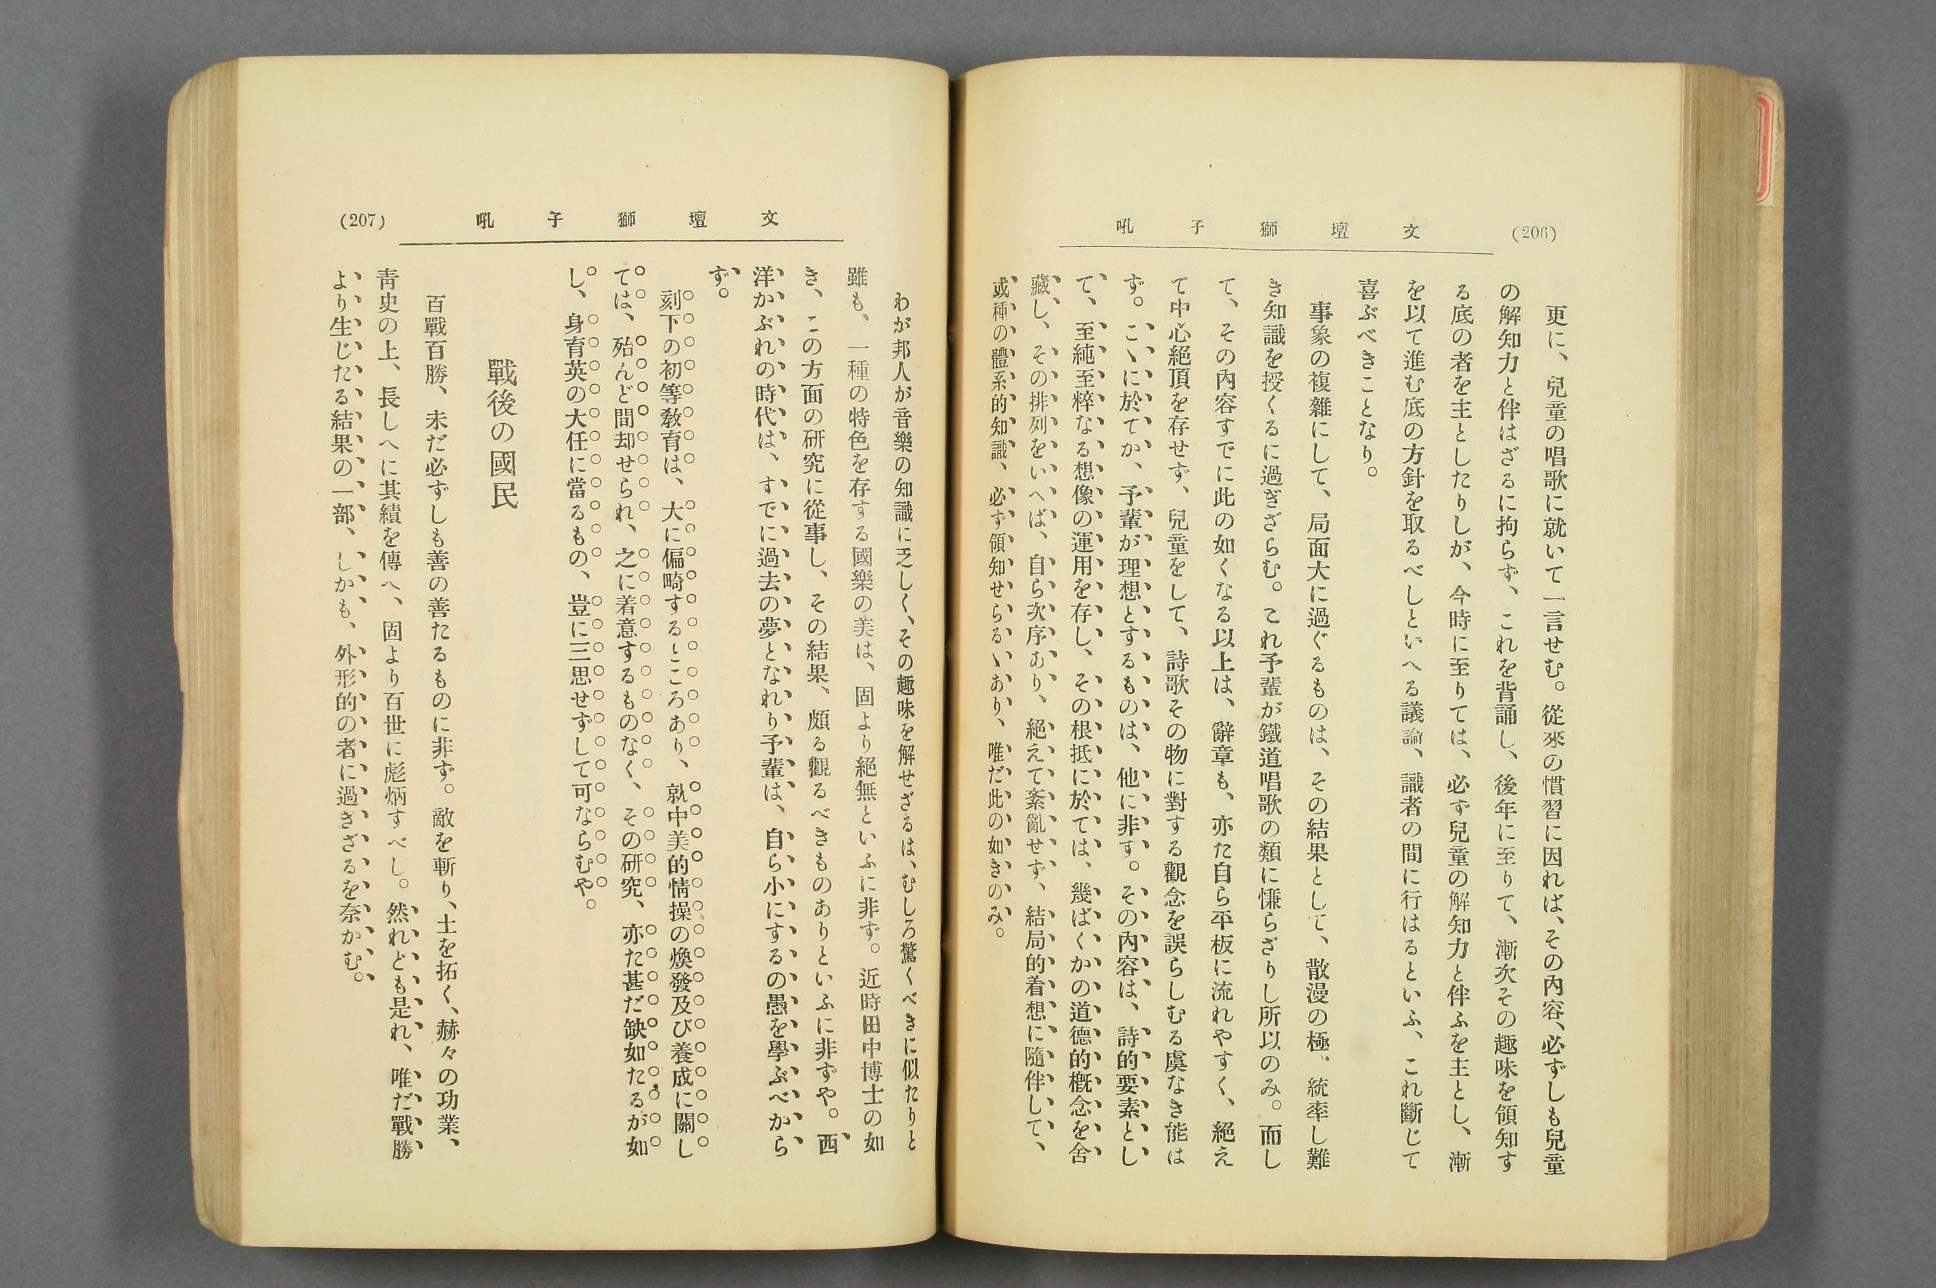 (206)
文壇獅子吼
更に、兒童の唱歌に就いて一言せむ。從來の慣習に因れば、その內容、必ずしも兒童
の解知力と伴はざるに拘らず、これを背誦し、後年に至りて、漸次その趣味を領知す
る底の者を主としたりしが、今時に至りては、必ず兒童の解知力と伴ふを主とし、漸
を以て進む底の方針を取るべしといへる議論、識者の間に行はるといふ、これ斷じて
喜ぶべきことなり。
事象の複雜にして、局面大に過ぐるものは、その結果として、散漫の極、統率し難
き知識を授くるに過ぎざらむ。これ予輩が鐵道唱歌の類に慊らざりし所以のみ。而し
て、その內容すでに此の如くなる以上は、辭章も、亦た自ら平板に流れやすく、絕え
て中心絕頂を存せず、兒童をして、詩歌その物に對する觀念を誤らしむる虞なき能は
ず。こゝに於てか、予輩が理想とするものは、他に非す。その內容は、詩的要素とし
て、至純至粹なる想像の運用を存し、その根抵に於ては、幾ばくかの道德的槪念を含
藏し、その排列をいへば、自ら次序あり、絕えて紊亂せず、結局的着想に隨伴して、
或種の體系的知識、必ず領知せらるゝあり、唯だ此の如きのみ。
文壇獅子吼
(207)
わが邦人が音樂の知識に乏しく、その趣味を解せざるは、むしろ驚くべきに似たりと
雖も、一種の特色を存する國樂の美は、固より絕無といふに非ず。近時田中博士の如
き、この方面の研究に從事し、その結果、頗る觀るべきものありといふに非ずや。西
洋かぶれの時代は、すでに過去の夢となれり予輩は、自ら小にするの愚を學ぶべから
ず。
刻下の初等敎育は、大に偏畸するところあり、就中美的情操の煥發及び養成に關し
ては、殆んど間却せられ、之に着意するものなく、その硏究、亦た甚だ缺如たるが如
し、身育英の大任に當るもの、豈に三思せずして可ならむや。
戰後の國民
百戰百勝、未だ必ずしも善の善たるものに非ず。敵を斬り、土を拓く、赫々の功業、
靑史の上、長しへに其績を傳へ、固より百世に彪炳すべし。然れども是れ、唯だ戰勝
より生じたる結果の一部、しかも、外形的の者に過ぎざるを奈かむ。